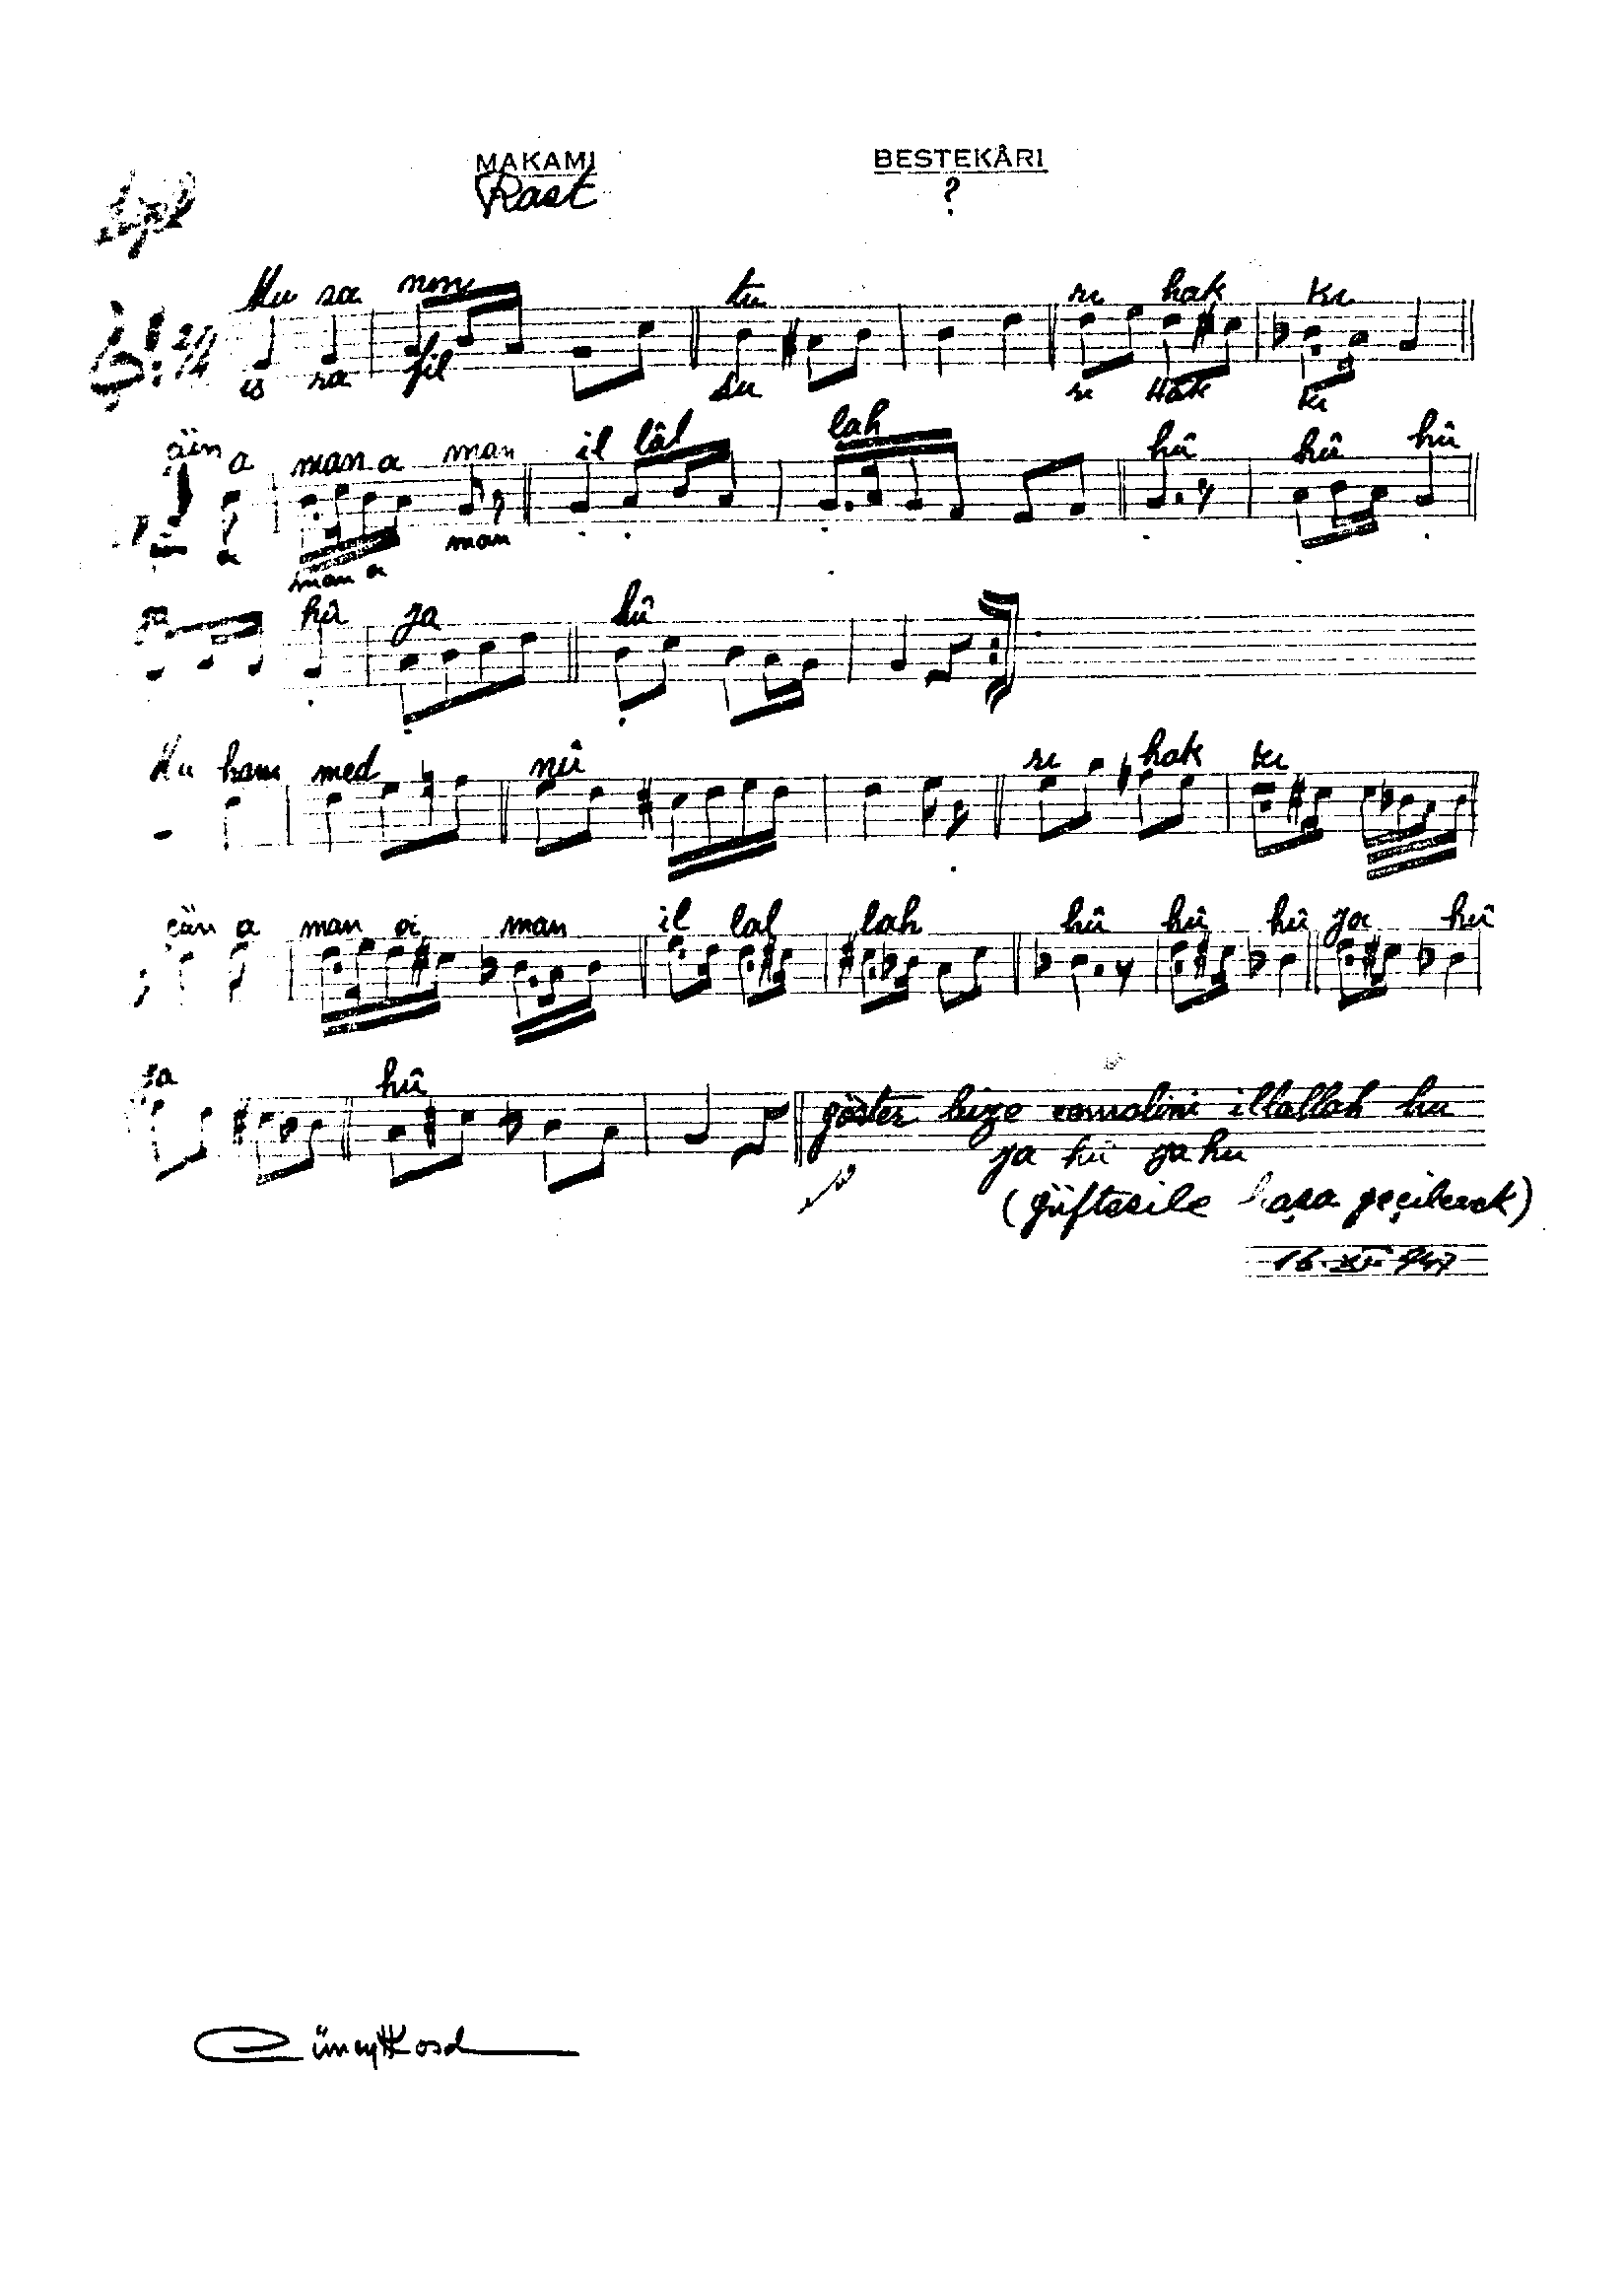 MAKAMI BESTEKÂRI
Rast ?
2/4
Mu sa nın tu ri hak kı
is ra fil su ri Hak kı
çün a man a man il lâl lah hû hû hû
a man a man
ya hû ya hû
Mu ham med nû ri hak kı
çün a man a man il lal lah hû hû hû ya hû
ya hû
göster bize cemalini illallah hu
ya hû ya hu
(Güftesile başa geçilecek)
16.XII.947